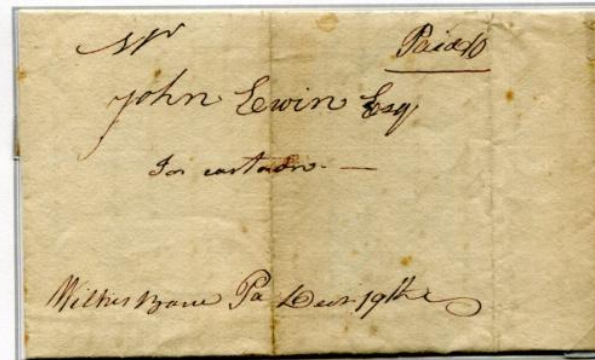 Mr Paid 10
John Ewin Esq
Wilkesbarre Pa Decr. 19th